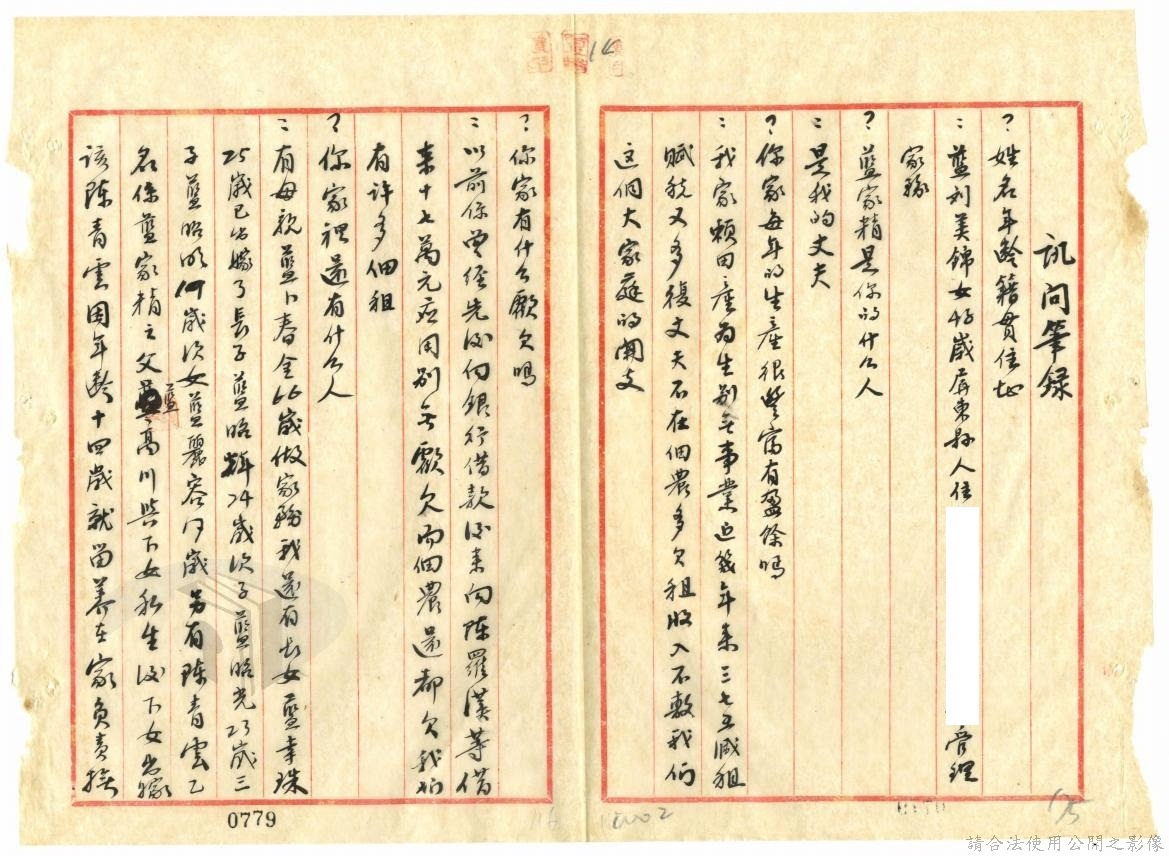 訊问筆録
? 姓名年齡籍貫住址
: 藍刘美錦女46歲屏東縣人住 管理
家務
? 藍家精是你的什么人
: 是我的丈夫
? 你家每年的生產很豐富有盈餘嗎
: 我家賴田產为生別无事業近幾年来三七五减租
賦税又多複丈夫不在佃農多欠租收入不敷我们
这個大家庭的開支
? 你家有什么虧欠嗎
: 以前係曾经先後向銀行借款後来向陈羅漢等借
来十七萬元应用別无虧欠而佃農還都欠我们
有许多佃租
? 你家裡還有什么人
: 有母親藍卜春金66歲做家務我還有長女藍幸珠
25歲已出嫁了長子藍昭輝24歲次子藍昭光23歲三
子藍昭明 歲次女藍麗容 歲另有陈青雲乙
名係藍家精之父藍高川與下女私生後下女出嫁
该陈青雲因年齡十四歲就留养在家负责撫
0779
請合法使用公開之影像